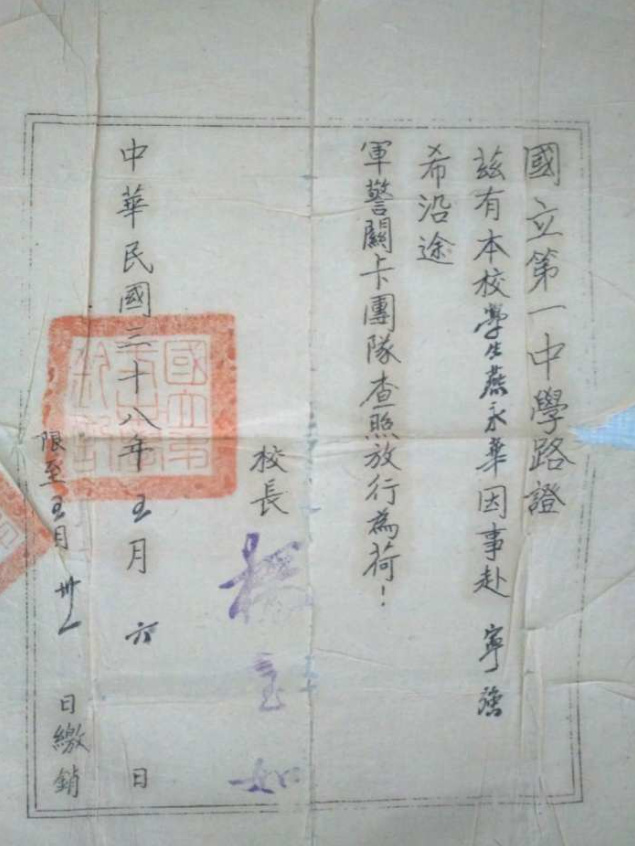 國立第一中學路證
茲有本校學生燕永華因事赴 寧強
希沿途
軍警關卡團隊查照放行為荷！
校長 楊玉如
中華民國三十八年五月 六 日
限至五月卅一日繳銷